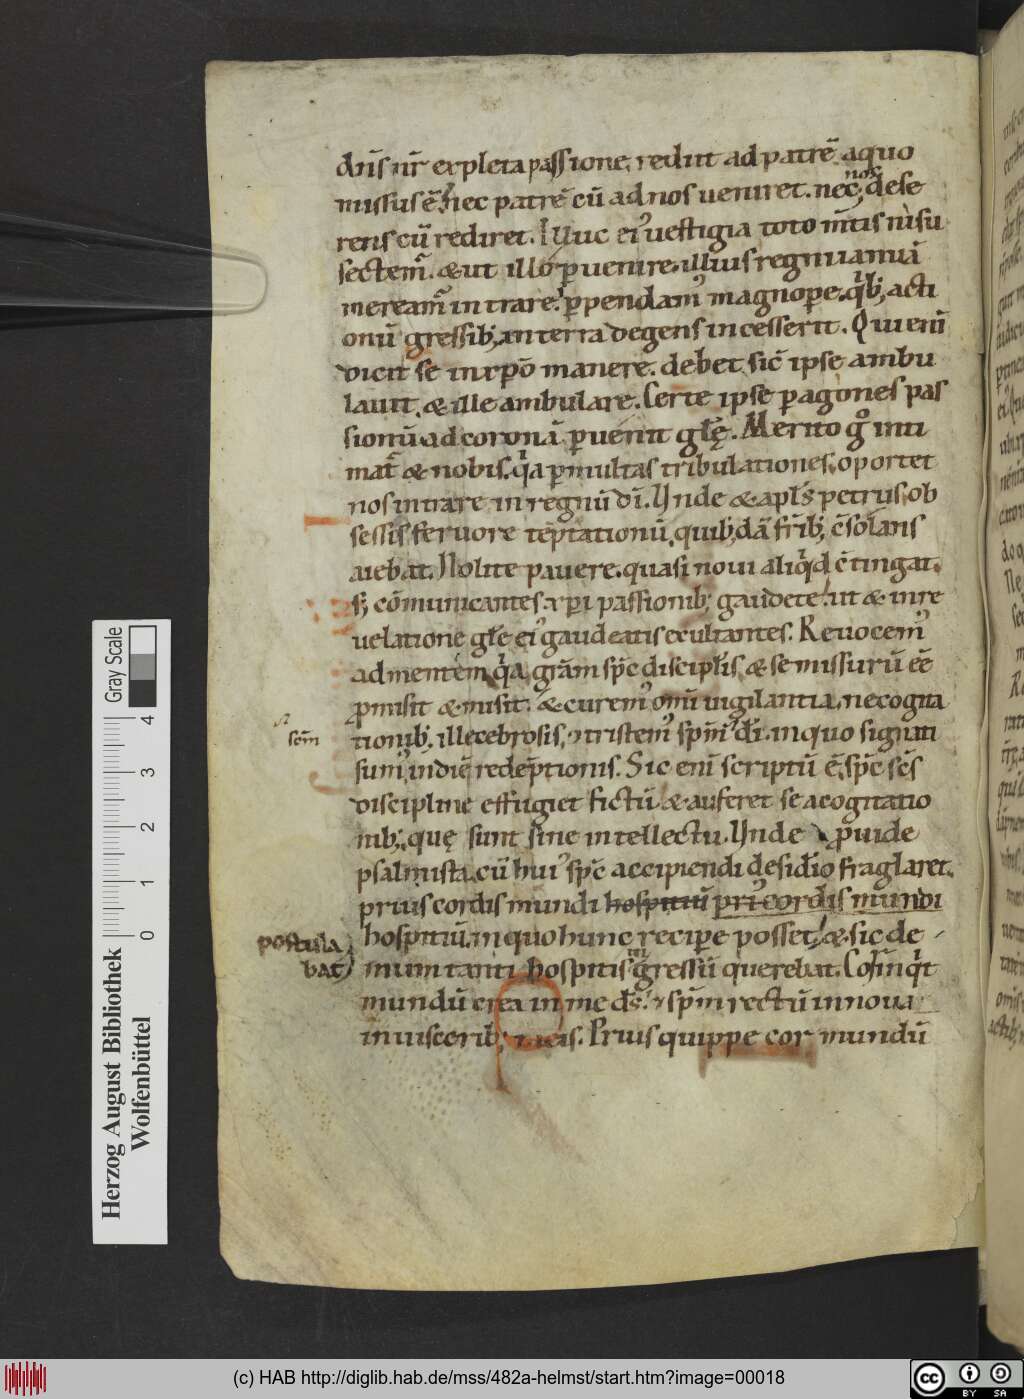 dn̄s nr̄ expleta passione, rediit ad patrē a quo
missus ē, nec patrē cū ad nos ueniret. nec nos dese
rens cū rediret. Illuc ei᾽ uestigia toto m̄tis nisu
sectem᾽. & ut illo ꝑuenire. illius regni ianuā
meream᾽ intrare. ꝑpendam᾽ magnopere. qͥb; acti
onū gressib; in terra degens incesserit. Qui eni
dicit se in xp̄o manere. debet sic̄ ipse ambu
lauit, & ille ambulare. Certe ipse ꝑ agones pas
sionū, ad coronā ꝑuenit glę̄. Merito gͦ inti
mat̄ & nobis. qͥa ꝑ multas tribulationes, oportet
nos intrare in regnū dī. Unde & apl̄s petrus, ob
sessis feruore tēptationū, quib;dā fr̄ib; c̄solans
aiebat. Nolite pauere. quasi noui aliqͥd c̄tingat.
s; cōmunicantes xp̄i passionib; gaudete. ut & in re
uelatione gl̄e ei᾽ gaudeatis exultantes. Reuocem᾽
ad mentem qͥa grām sp̄c disciplis, & se missurū ēē
ꝓmisit & misit. & curem᾽ omī uigilantia, ne cogita
tionib; illecebrosis, ꝯtristem᾽ sp̄m dī. in quo signati
sum᾽ in diē redēptionis. Sic enī scriptū ē, sp̄c sc̄s
discipline effugiet fictū & auferet se a cogitatio
nib; quę sunt sine intellectu. Unde ꝓuide
psalmista, cū hui᾽ sp̄c accipiendi desidīo fraglaret.
prius cordis mundi hospitiū pri᾽ cordis mundi
postula
bat
hospitiū, in quo hunc recipe posset. & sic de
mum tanti hospitis īgressū querebat. Cor inqͥt
mundū crea in me ds̄. & sp̄m rectū innoua
in uisceri b; meis. Prius quippe cor mundū
sem̄
Gray Scale
4
3
2
1
0
Herzog August Bibliothek
Wolfenbüttel
(c) HAB http://diglib.hab.de/mss/482a-helmst/start.htm?image=00018
cc BY SA